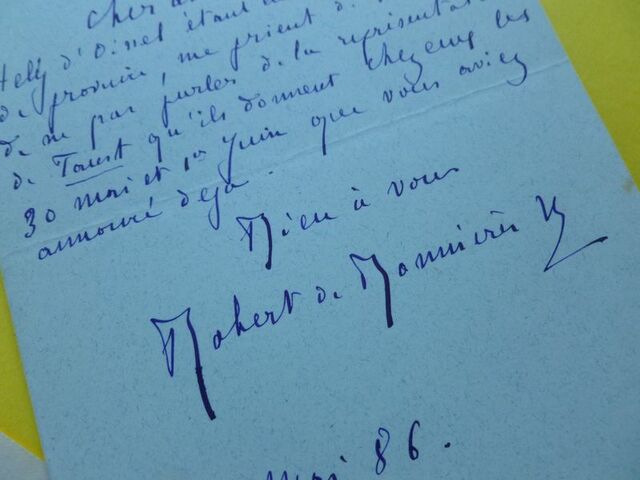 Cher
Helly d'Oissel étant
de province, me prient de
de ne pas parler de la représentat
de Faust qu'ils donnent chez eux les
30 mai et 1er Juin que vous aviez
annoncé déjà.
Bien à vous
Robert de Bonnières
mai 86.